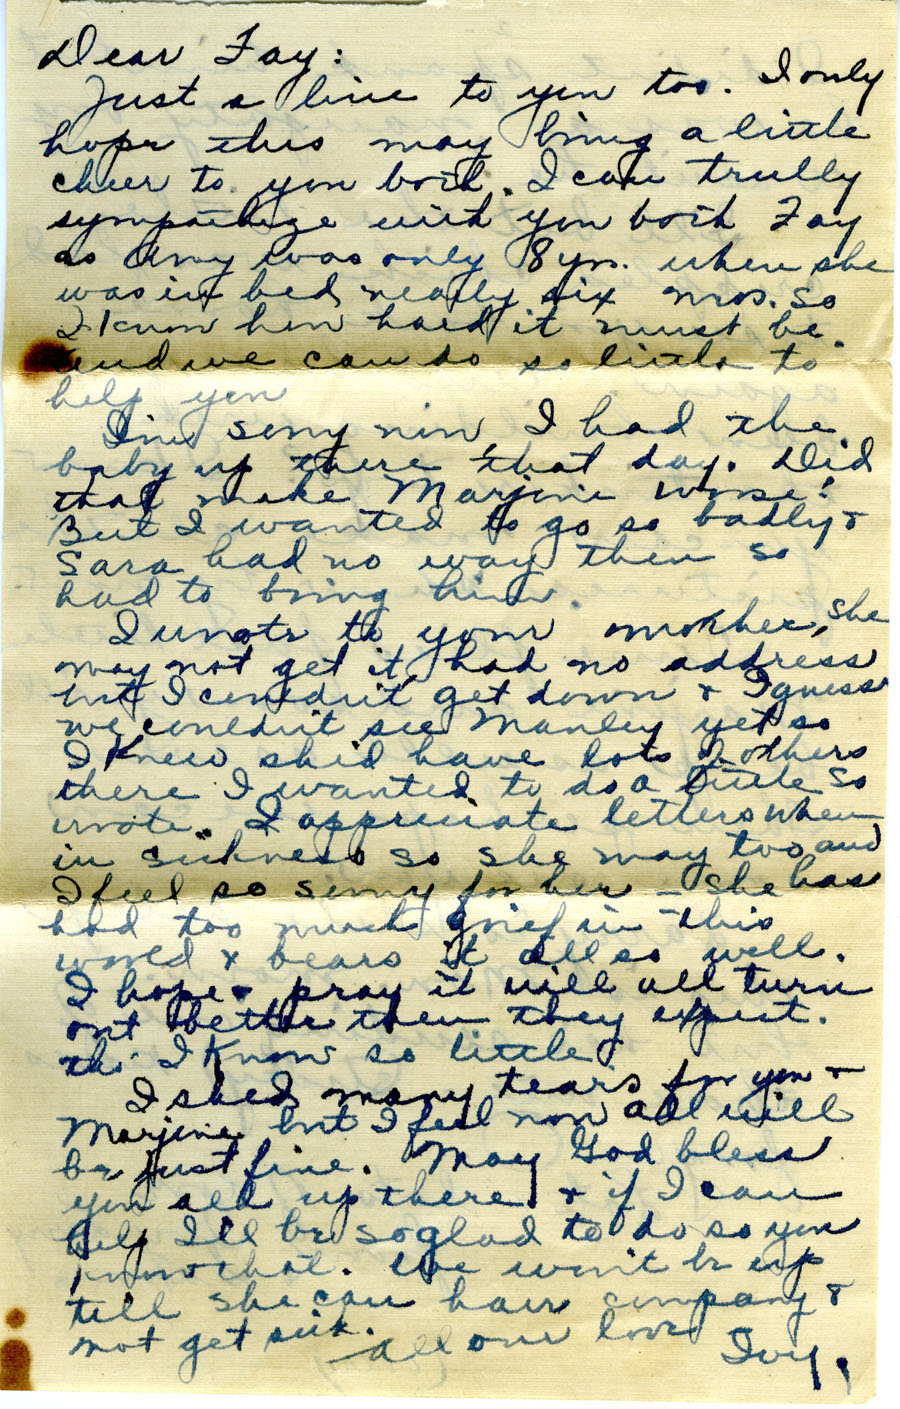 Dear Fay:
Just a line to you too. I only
hope this may bring a little
cheer to you both. I can trully
sympathize with you both Fay
as Amy was only 8 yrs. when she
was in bed nearly six mos. so
I know how hard it must be
and we can do so little to
help you
I'm sorry now I had the
baby up there that day. Did
that make Marjorie worse?
But I wanted to go so badly &
Sara had no way then so
had to bring him.
I wrote to your mother, she
may not get it, had no address
but I couldn't get down & I guess
we couldn't see Manley yet so
I knew she'd have lots of others
there I wanted to do a little so
wrote. I appriciate letters when
in sickness so she may too and
I feel so sorry for her – she has
had too much grief in this
world & bears it all so well.
I hope & pray it will all turn
out better then they expect.
tho I know so little
I shed many tears for you &
Marjorie but I feel now all will
be just fine. May God bless
you all up there & if I can
help I'll be so glad to do so you
know that. We won't be up
till she can have company &
not get sick.
All our love
Ivy.